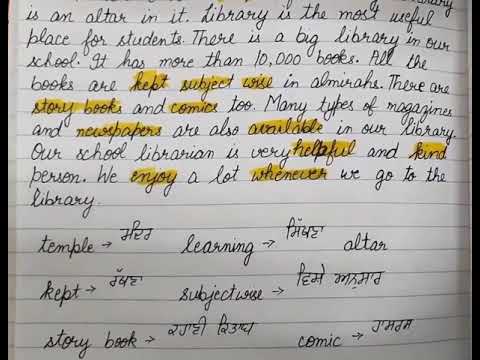 is an altar in it. Library is the most useful
place for students. There is a big library in our
school. It has more than 10,000 books. All the
books are kept subject wise in almirahs. There are
story books and comics too. Many types of magazines
and newspapers are also available in our library.
Our school librarian is very helpful and kind
person. We enjoy a lot whenever we go to the
library.
temple → ਮੰਦਿਰ learning → ਸਿੱਖਣਾ altar
kept → ਰੱਖਣਾ subjectwise → ਵਿਸ਼ੇ ਅਨੁਸਾਰ
story book → ਕਹਾਣੀ ਕਿਤਾਬ comic → ਹਾਸਰਸ